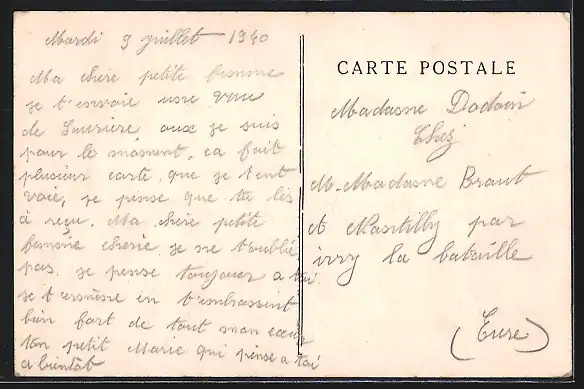 Mardi 9 juillet 1940
Ma chère petite femme
je t'envoie une vue
de Laurière aux je suis
pour le moment, ca fait
plusieur carte que je t'ent
voie, je pense que tu lis
a reçu. Ma chère petite
femme cherie je ne t'oublie
pas je pense toujour a toi
je t'ernine en t'embrassint
bien fort de tout mon cœur
ton petit Marie qui pense a toi
a bientât
CARTE POSTALE
Madame Dodoin
Chez
M. Madame Braut
A Nantilly par
ivry la bataille
(Eure)